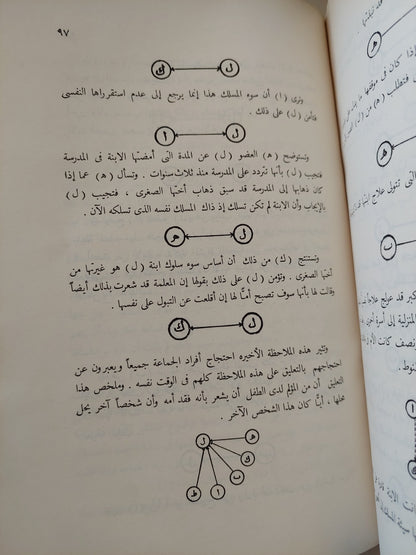 ٩٧
ك ل
وترى ( ا ) أن سوء المسلك هذا إنما يرجع إلى عدم استقرارها النفسى
فتأمن ( ل ) على ذلك .
ا ل
وتستوضح ( ه ) العضو ( ل ) عن المدة التى أمضتها الابنة فى المدرسة
فتجيب ( ل ) بأنها تتردد على المدرسة منذ ثلاث سنوات . وتسأل ( ه ) عما إذا
كان ذهابها إلى المدرسة قد سبق ذهاب أختها الصغرى ، فتجيب ( ل )
بالإيجاب وأن الابنة لم تكن تسلك إذ ذاك المسلك نفسه الذى تسلكه الآن .
ه ل
وتستنتج ( ك ) من ذلك أن أساس سوء سلوك ابنة ( ل ) هو غيرتها من
أختها الصغرى . وتؤمن ( ل ) على ذلك بقولها إن المعلمة قد شعرت بذلك أيضاً
وقالت لها بأنها سوف تصبح أمناً لها إن أقلعت عن التبول على نفسها .
ك ل
وتثير هذه الملاحظة الأخيره احتجاج أفراد الجماعة جميعاً ويعبرون عن
احتجاجهم بالتعليق على هذه الملاحظة كلهم فى الوقت نفسه . وملخص هذا
التعليق أن من المؤلم لدى الطفل أن يشعر بأنه فقد أمه وأن شخصاً آخر يحل
محلها ، أيـًّا كان هذا الشخص الآخر .
ل ه
ك
ب
ط ا